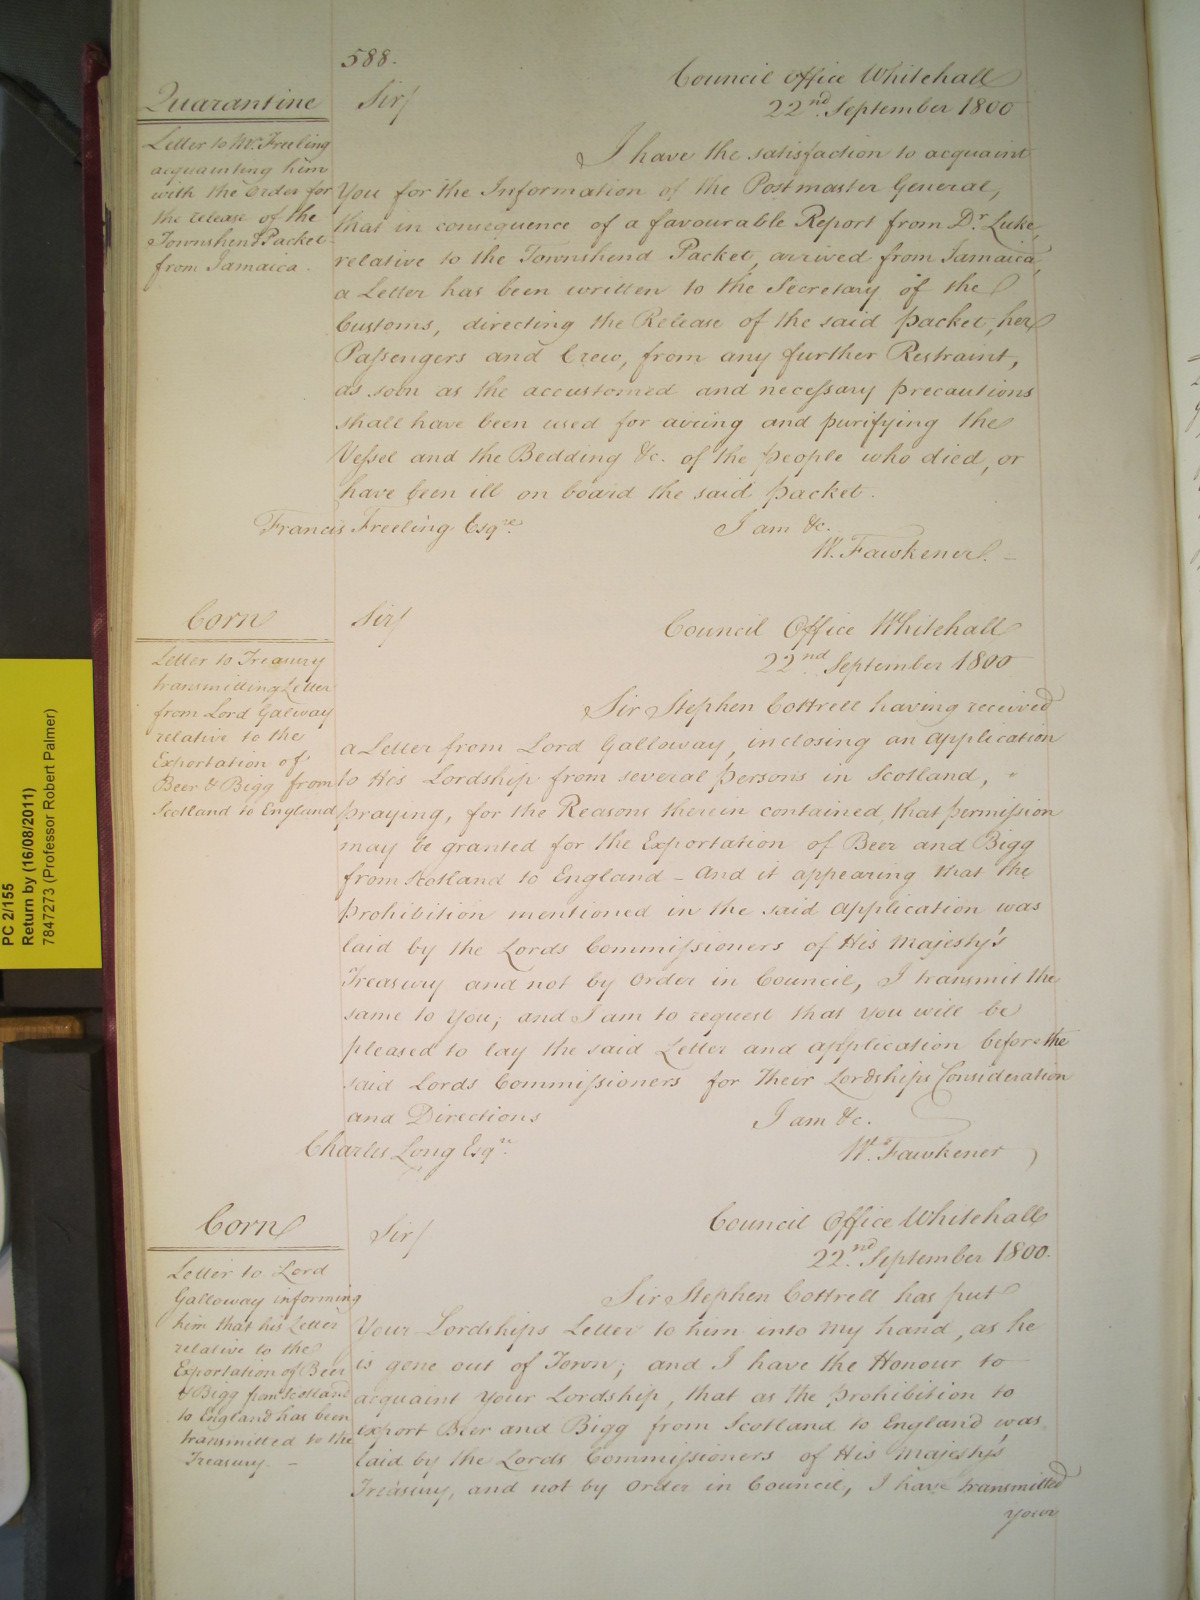 588.
Quarantine
Letter to Mr. Freeling
acquainting him
with the Order for
the release of the
Townshend Packet
from Jamaica.
Sir/
Council Office Whitehall
22nd. September 1800
I have the satisfaction to acquaint
You for the Information of the Postmaster General,
that in consequence of a favourable Report from Dr. Luke,
relative to the Townshend Packet, arrived from Jamaica,
a Letter has been written to the Secretary of the
Customs, directing the Release of the said packet, her
Paſsengers and Crew, from any further Restraint,
as soon as the accustomed and neceſsary precautions
shall have been used for airing and purifying the
Veſsel and the Bedding &c. of the people who died, or
have been ill on board the said packet.
Francis Freeling Esqre.
I am &c.
W. Fawkener. –
Corn
Letter to Treasury
transmitting Letter
from Lord Galway
relative to the
Exportation of
Beer & Bigg from
Scotland to England
Sir/
Council Office Whitehall
22nd. September 1800
Sir Stephen Cottrell having received
a Letter from Lord Galloway, inclosing an application
to His Lordship from several persons in Scotland,
praying, for the Reasons therein contained, that permiſsion
may be granted for the Exportation of Beer and Bigg
from Scotland to England – And it appearing that the
prohibition mentioned in the said application was
laid by the Lords Commiſsioners of His Majesty's
Treasury and not by Order in Council, I transmit the
same to You; and I am to request that you will be
pleased to lay the said Letter and application before the
said Lords Commiſsioners for their Lordships Consideration
and Directions
I am &c.
Charles Long Esqre.
W. Fawkener
Corn
Letter to Lord
Galloway informing
him that his Letter
relative to the
Exportation of Beer
& Bigg from Scotland
to England has been
transmitted to the
Treasury. –
Sir/
Council Office Whitehall
22nd. September 1800.
Sir Stephen Cottrell has put
Your Lordships Letter to him into my hand, as he
is gone out of Town; and I have the Honour to
acquaint Your Lordship, that as the prohibition to
export Beer and Bigg from Scotland to England was
laid by the Lords Commiſsioners of His Majesty's
Treasury, and not by Order in Council, I have transmitted
your
PC 2/155
Return by (16/08/2011)
7847273 (Professor Robert Palmer)